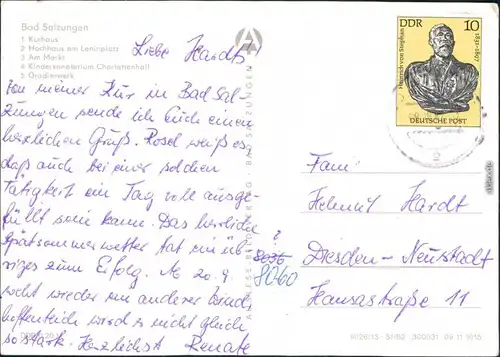 Bad Salzungen
1 Kurhaus
2 Hochhaus am Leninplatz
3 Am Markt
4 Kindersanatorium Charlottenhall
5 Gradierwerk
Liebe Hardts
Von meiner Kur in Bad Sal-
zungen sende ich Euch einen
herzlichen Gruß. Rosel weiß es,
daß auch bei einer solchen
Tätigkeit ein Tag voll ausge-
füllt sein kann. Das herrliche
Spätsommerwetter tat ein üb-
riges zum Erfolg. Ab 20.9.
weht wieder ein anderer Wind,
hoffentlich wird es nicht gleich
so stark. Herzlichst Renate
DDR 10
Heinrich von Stephan
1831-1897
DEUTSCHE POST
Fam.
Helmut Hardt
8036
8060
Dresden-Neustadt
Hansastraße 11